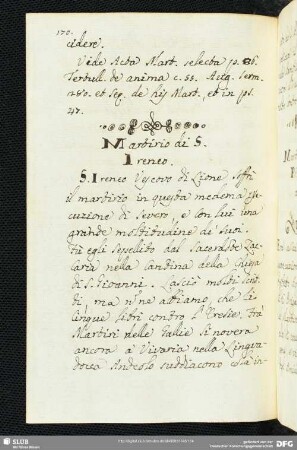 170.
cidere.
Vide Acta Mart. selecta p. 86.
Tertull. de anima c. 55. Aug. Serm.
280. et seq. de his Mart., et in ps.
47.
Martirio di S.
Ireneo.
S. Ireneo Vescovo di Lione soffrì
il martirio in questa medema
cuzione di Severo, e con lui una
grande moltitudine de suoi.
Fù egli sepellito dal Sacerdote Zac-
caria nella cantina della Chiesa
di S. Giovanni. Lasciò molti scrit-
ti, ma n'ne abbiamo, che li
cinque libri contro l'Eresie. Frà
Martiri delle Gallie si novera
ancora a Vivaria nella Lingua-
doca Andeolo suddiacono
SLUB
Wir führen Wissen.
gefördert von der
DFG